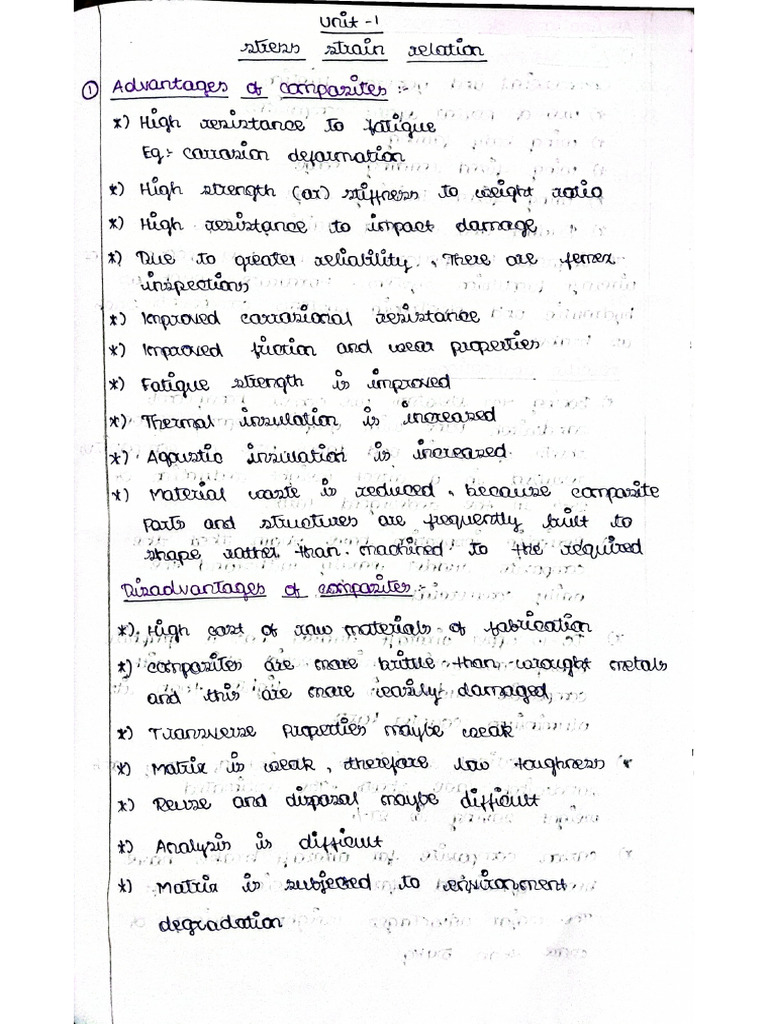 Unit -1
Stress Strain relation
① Advantages of composites :-
*) High resistance to fatigue
Eg:- corrosion deformation
*) High strength (or) stiffness to weight ratio
*) High resistance to impact damage
*) Due to greater reliability, There are fewer
inspections
*) Improved corrosional resistance
*) Improved friction and wear properties
*) Fatigue strength is improved
*) Thermal insulation is increased
*) Aqustic insulation is increased
*) Material waste is reduced, because composite
parts and structures are frequently built to
shape rather than machined to the required
Disadvantages of composites :-
*) High cost of raw materials of fabrication
*) composites are more brittle than wrought metals
and this are more easily damaged
*) Transverse Properties maybe weak
*) Matrix is weak, therefore low toughness
*) Reuse and disposal maybe difficult
*) Analysis is difficult
*) Matrix is subjected to environment
degradation